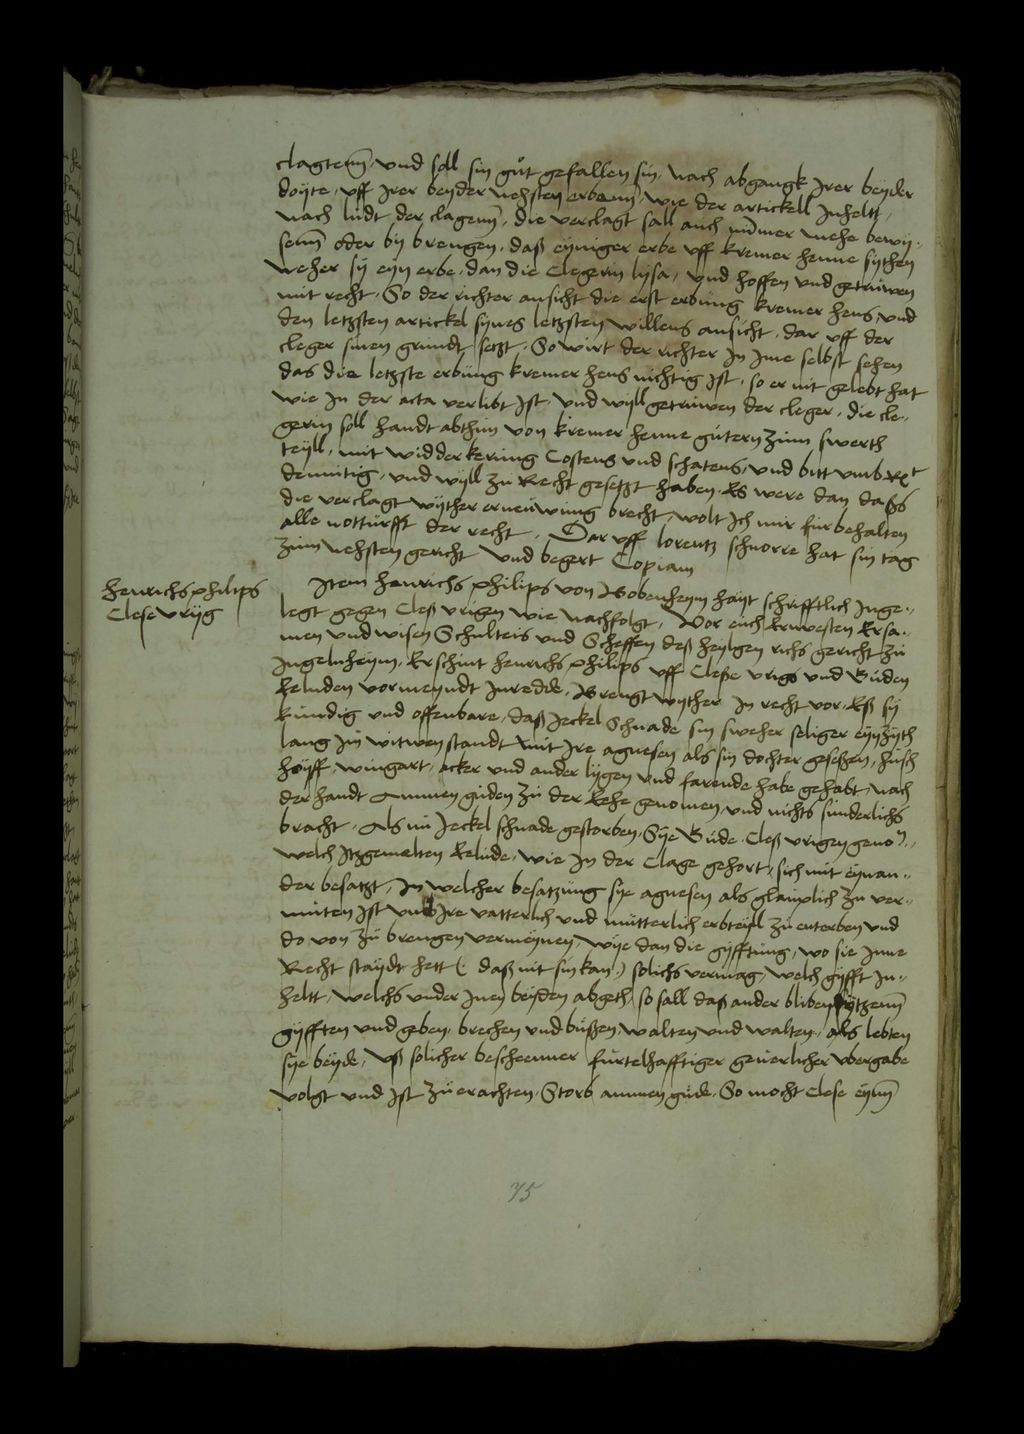 clagtenn, und soll sin gut gefallen sin, nach abgangk irer beyder
doyte, uff irer beyder nehsten erbenn, wie der artickell inheltt,
nach ludt der clagenn, die verclagt sall auch nimmer mehe bewy-
senn oder by brengen, daß eyniger erbe uff kremer henne sythen
neher sy eyn erbe, dan die Clegerin lysa, und hoffen und getruwen
mit recht, So der richter ansicht die erst erbung kremer hens und
den letzsten artickel synes letzsten willens ansicht, dar uff der
cleger sinen grundt setzt, So wirt der richter in ime selbst sehen
das die letzste erbung kremer hens nichtig ist, so er nit gelebt hat
wie in der acta verlibt ist, und wyll getruwen der cleger, die cle-
gerin soll handt abthun von kremer henne gutern zum swerth
teyll, mit widderkerung Costens und schatens, und bitt umb R[t]
demutig, und wyll zu Recht gesetzt haben, Es were dan daßs
die verclagt wyther erneuwung brecht, wolt ich mir furbehalten
alle notturfft der recht, Dar uff lorentz schnorre hat sin tag
zum nehsten gericht und begert Copiam
Henrichs philips
Clese Vryg
Item henrichs philips von Bobenheym hayt schrifftlich inge-
legt gegen Cleß vrigen wie nachfolgt, Vor euch Ernvesten Ersa-
men und wisen Schulteis und Scheffen deß heylgen richs gericht zu
Ingelnheym, Erschint henrichs philips uff Cleße vrigs und Buden
Eeluden vormeyndt inredde, Brengt wyther in recht vor, Eß sy
kundig und offenbare, daß Jeckel Schnade sin sweher seliger eyn zyth
lang in witwen standt mit ire agnesen als sin dochter geseßen, husch
hoyff, wingart, acker und ander lygen und farende habe gehabt, nach
der handt Ammen guden zu der Eehe genomen, und nichts sunderlichs
bracht, Als nu Jeckel schnade gestorben, Sye Bude, Cleß vrigen genon,
welch itzgemelten Eelude, wie in der Clage gehort, sich mit eynan-
der besatzt, in welcher besatzung sye agnesen als glauplich zu ver-
muten ist und ire vatterlich und mutterlich erbteyll zu enterben und
do von zu brengen vermeynen, wye dan die gyfftung, wo sie inne
Recht staydt hett (: daß nit sin kan :) solichs vermag, welch gyfft in-
heltt, welchs under inen beyden abgeth, so sall daß ander bliben sytzenn
gyfften und geben, brechen und bußen walten und walten, als lebten
sye beyde, Uß solicher bescheenner furtelhafftiger geverlicher ubergabe
volgt und ist zu erachten, Storb ammen gude, So mocht Clese eynn
75